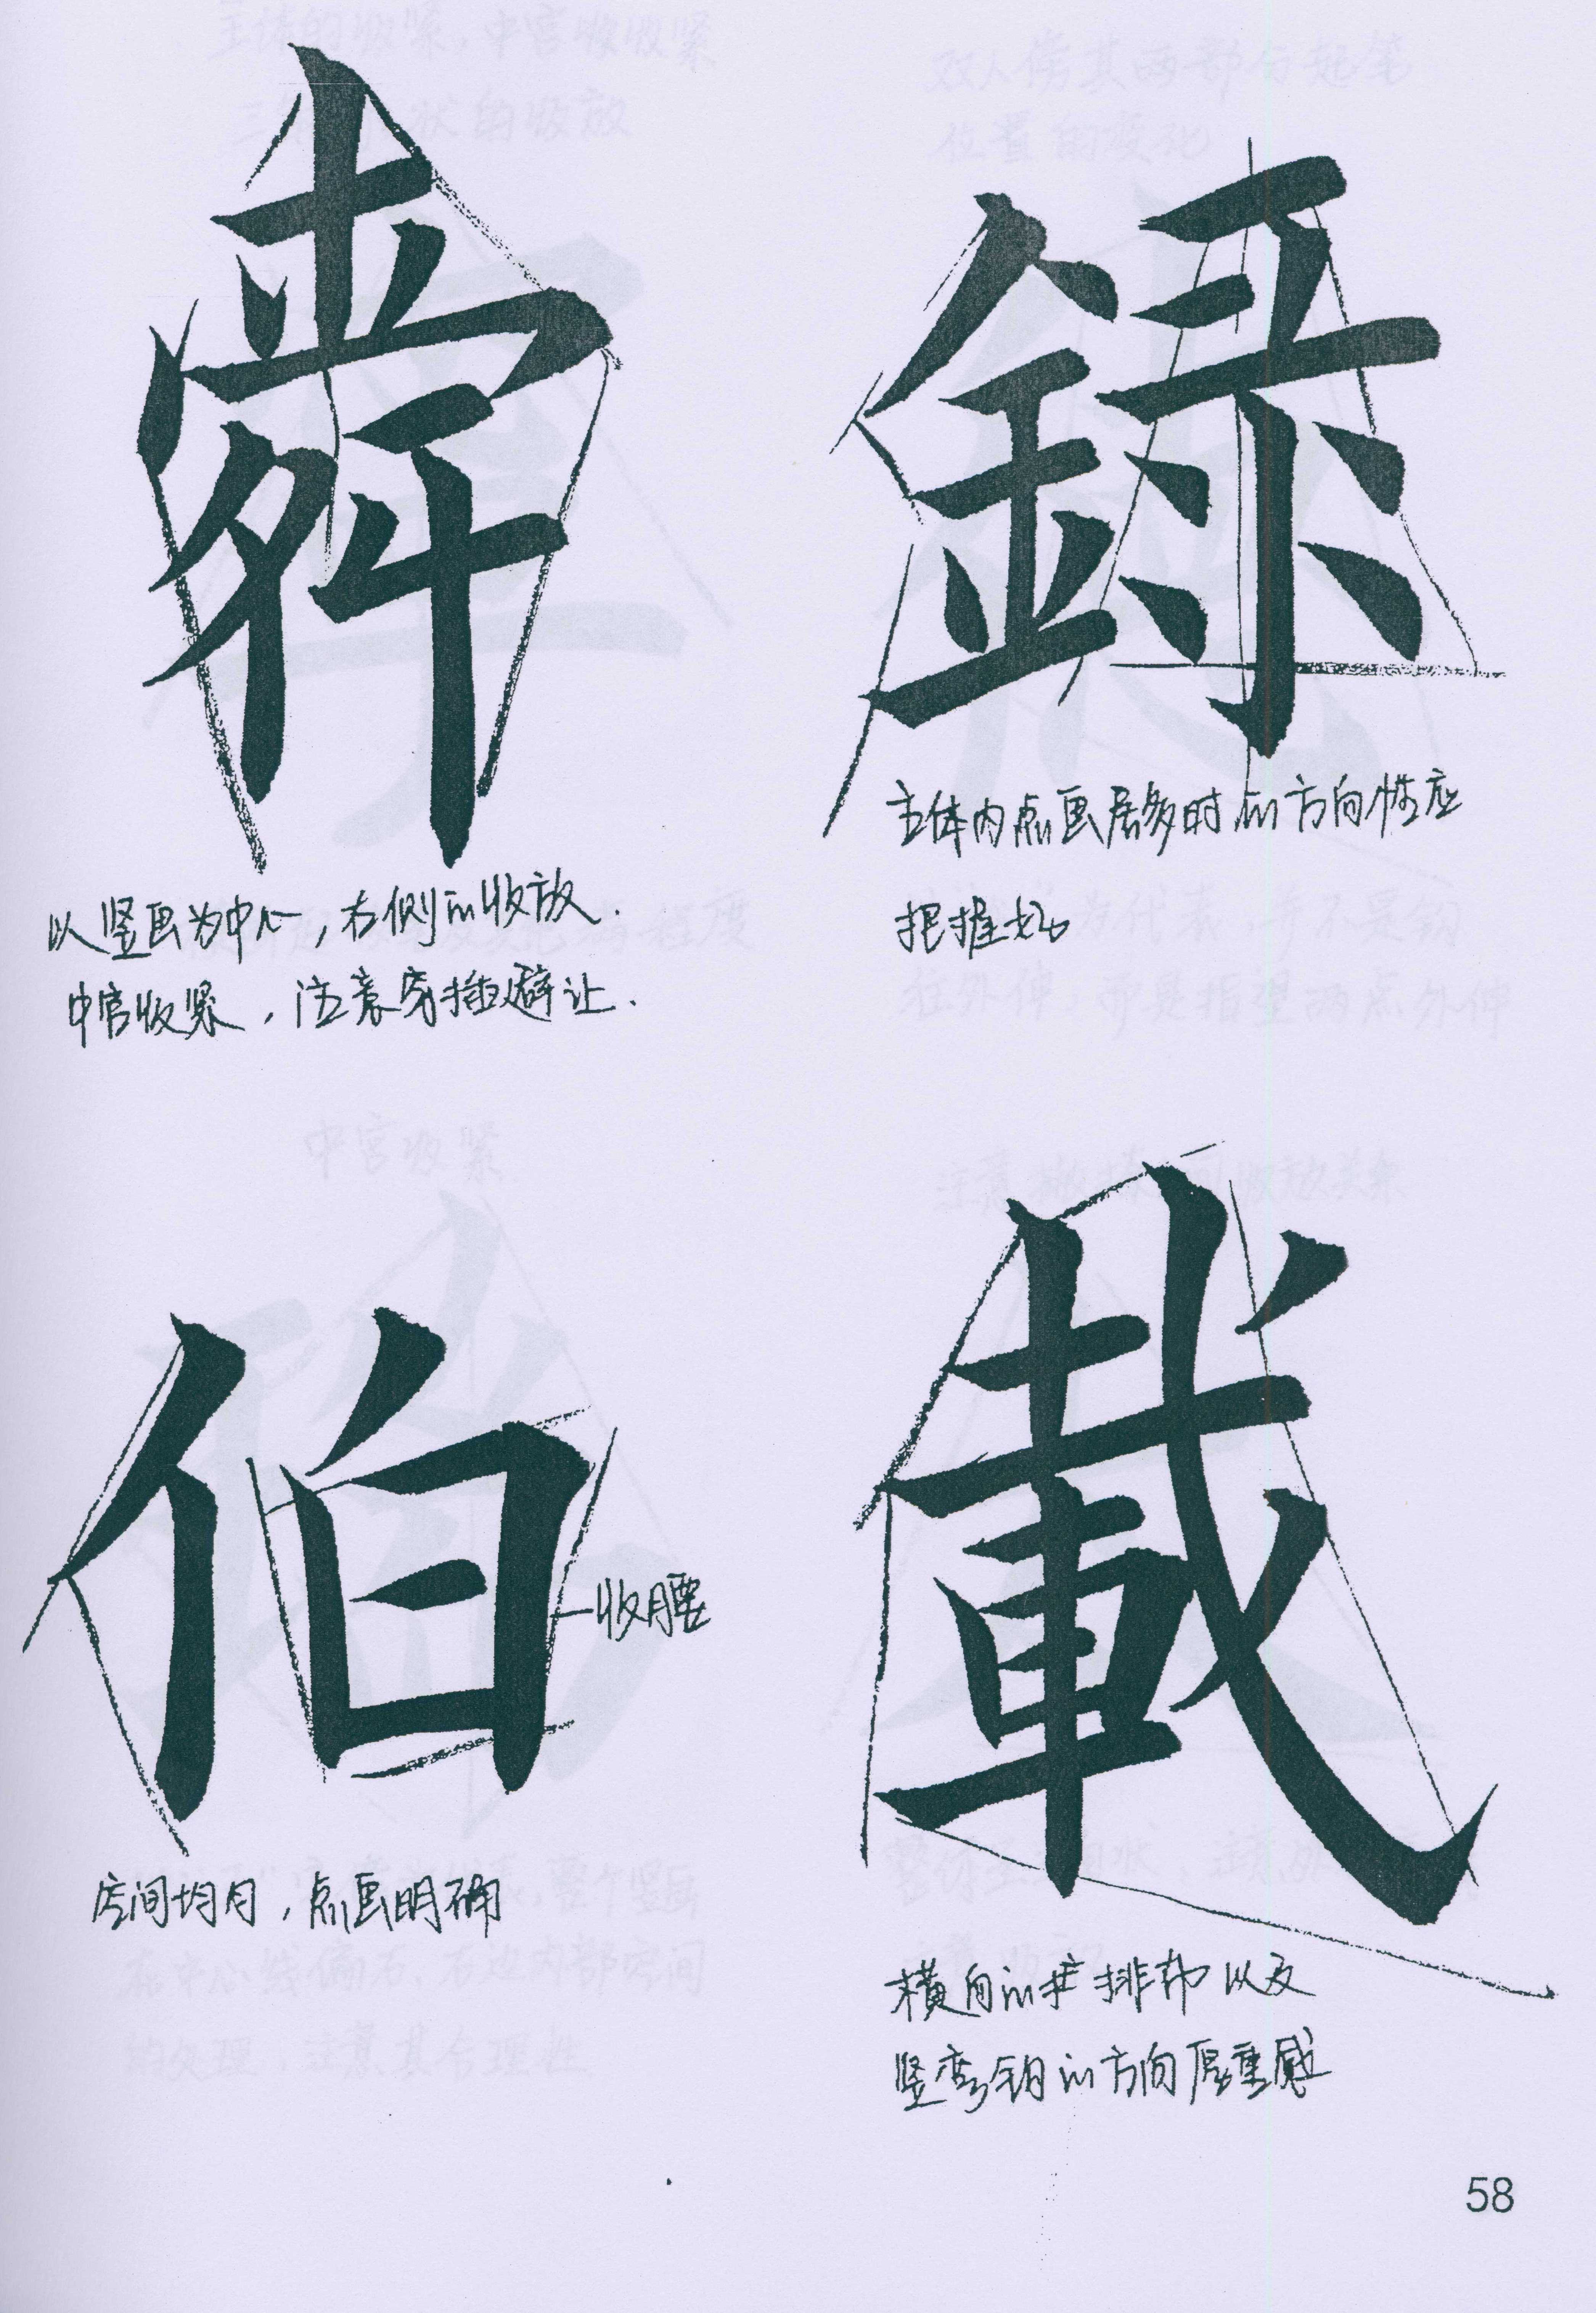 舜
以竖画为中心，右侧的收放．
中宫收紧，注意穿插避让．
録
主体内点画居多时的方向性应
把握好
伯
收腰
空间均匀，点画明确
載
横向的扩排布以及
竖弯钩的方向厚重感
58